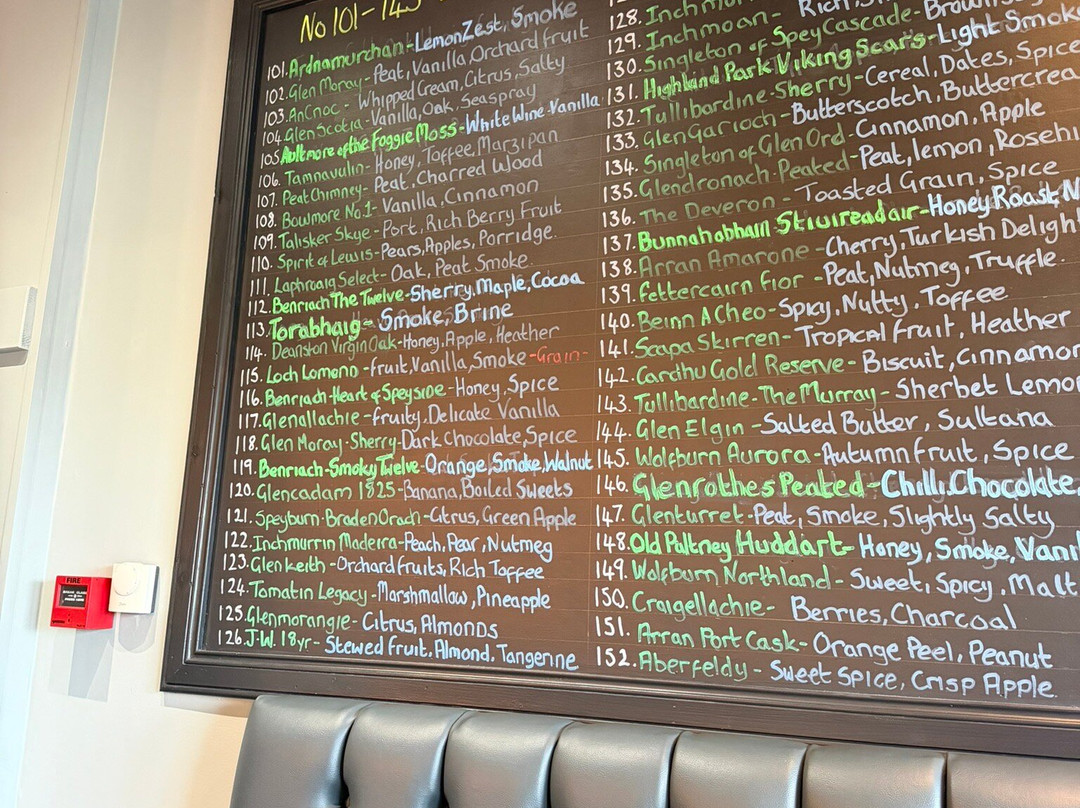 No 101-145
101. Ardnamurchan-Lemon Zest, Smoke
102. Glen Moray-Peat, Vanilla, Orchard fruit
103. AnCnoc - Whipped Cream, Citrus, Salty
104. Glen Scotia-Vanilla, Oak, Seaspray
105. Aultmore of the Foggie Moss-White Wine-Vanilla
106. Tamnavulin-Honey, Toffee, Marzipan
107. Peat Chimney-Peat, Charred Wood
108. Bowmore No.1-Vanilla, Cinnamon
109. Talisker Skye-Port, Rich Berry Fruit
110. Spirit of Lewis-Pears, Apples, Porridge
111. Laphroaig Select-Oak, Peat Smoke
112. Benriach The Twelve-Sherry, Maple, Cocoa
113. Torabhaig-Smoke, Brine
114. Deanston Virgin Oak-Honey, Apple, Heather
115. Loch Lomond-fruit, Vanilla, Smoke-Grain-
116. Benriach-Heart of Speyside-Honey, Spice
117. Glenallachie-fruity, Delicate Vanilla
118. Glen Moray-Sherry-Dark Chocolate, Spice
119. Benriach-Smoky Twelve-Orange, Smoke, Walnut
120. Glencadam 1825-Banana, Boiled Sweets
121. Speyburn-Braden Orach-Citrus, Green Apple
122. Inchmurrin Madeira-Peach, Pear, Nutmeg
123. Glen keith-Orchard fruits, Rich Toffee
124. Tomatin Legacy-Marshmallow, Pineapple
125. Glenmorangie-Citrus, Almonds
126. J.W. 18yr-Stewed fruit, Almond, Tangerine
128. Inchmoan- Rich,
129. Singleton of Spey Cascade-
130. Highland Park Viking Scars-Light Smoke
131. Tullibardine-Sherry-Cereal, Dates, Spice
132. Glen Garioch-Butterscotch, Buttercrea
133. Singleton of Glen Ord-Cinnamon, Apple
134. Glendronach-Peated-Peat, lemon, Rosehi
135. The Deveron - Toasted Grain, Spice
136. Bunnahabhain Stiuireadair-Honey Roast, N
137. Arran Amarone-Cherry, Turkish Delight
138. fettercairn fior-Peat, Nutmeg, Truffle.
139. Beinn A Cheo-Spicy, Nutty, Toffee
140. Scapa Skirren-Tropical fruit, Heather
141. Cardhu Gold Reserve-Biscuit, Cinnamon
142. Tullibardine-The Murray-Sherbet Lemon
143. Glen Elgin-Salted Butter, Sultana
144. Wolfburn Aurora-Autumn fruit, Spice
145. Glenrothes Peated-Chilli, Chocolate,
146. Glenturret-Peat, Smoke, Slightly Salty
147. Old Pultney Huddart-Honey, Smoke, Vani
148. Wolfburn Northland-Sweet, Spicy, Malt
149. Craigellachie- Berries, Charcoal
150. Arran Port Cask-Orange Peel, Peanut
151. Aberfeldy-Sweet Spice, Crisp Apple
152.
FIRE